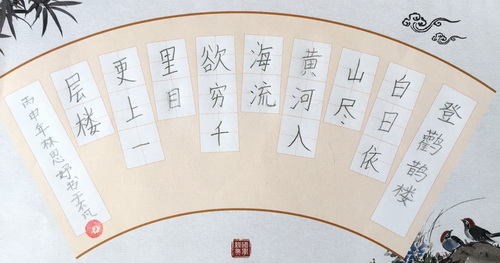 登鹳鹊楼
白日依
山尽
黄河入
海流
欲穷千
里目
更上一
层楼
丙申年林思书于